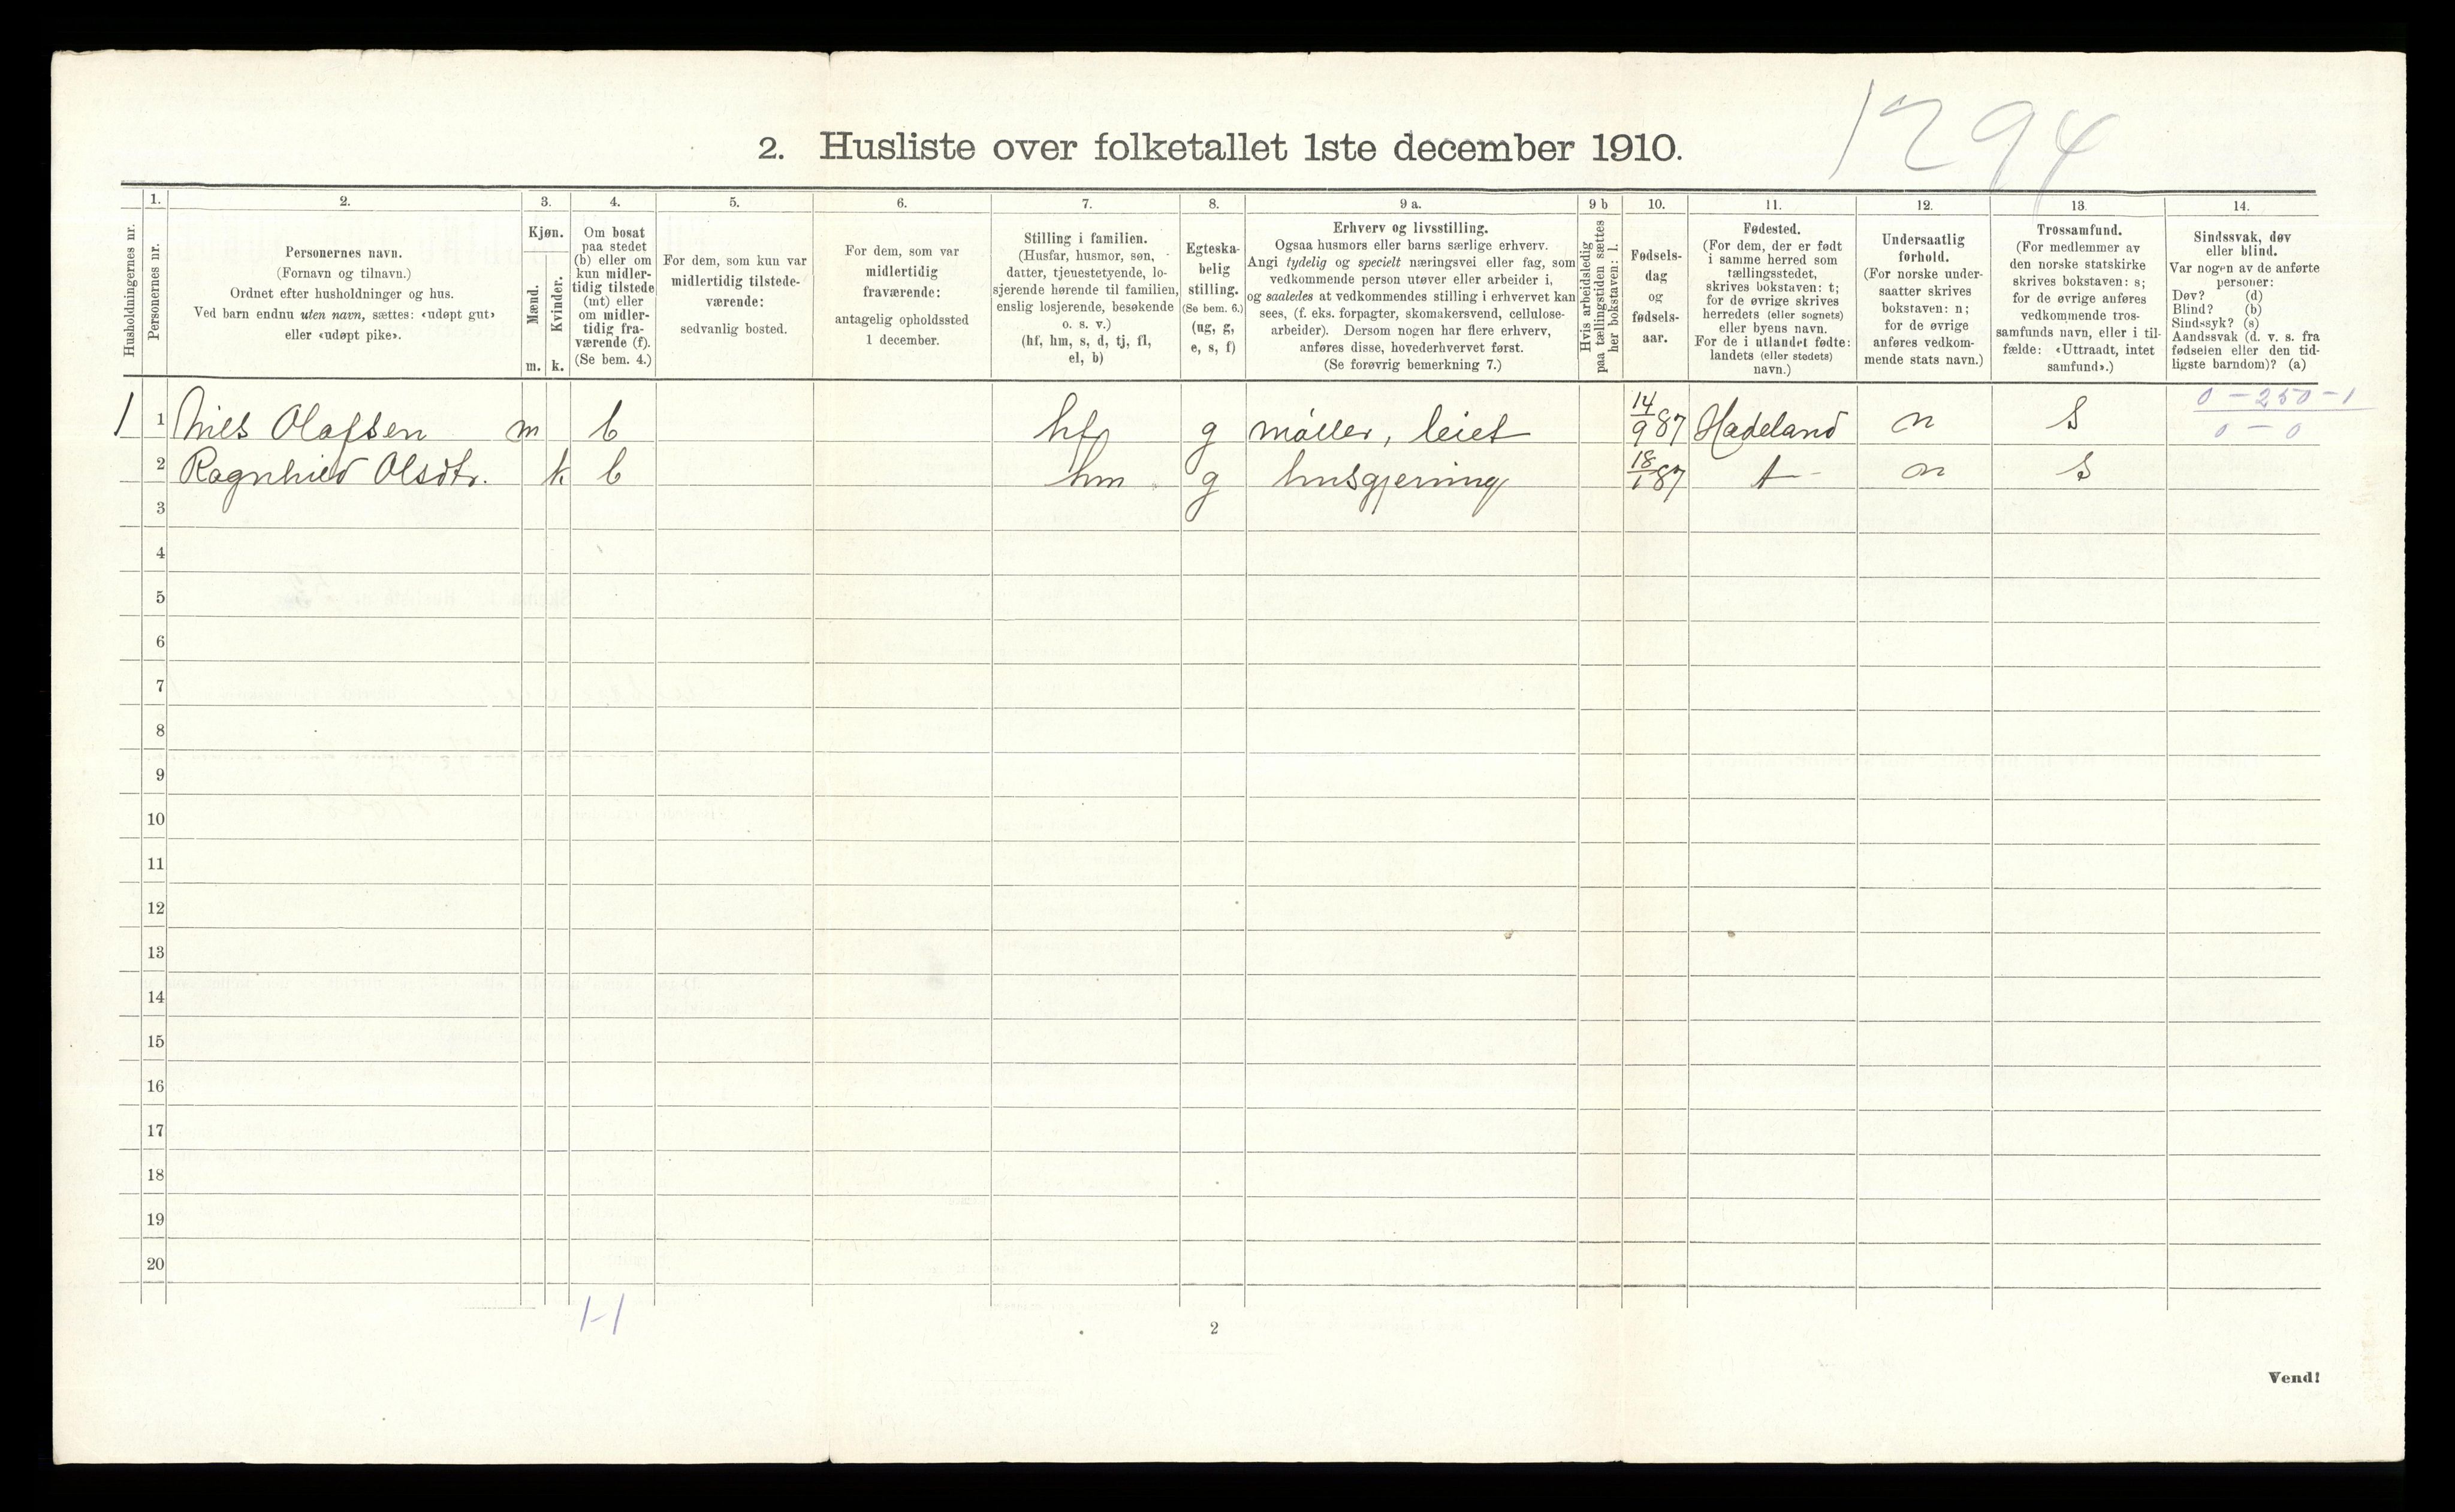 1294
2. Husliste over folketallet 1ste december 1910.
Husholdningernes nr.
1.
Personernes nr.
2.
Personernes navn.
(Fornavn og tilnavn.)
Ordnet efter husholdninger og hus.
Ved barn endnu uten navn, sættes: «udøpt gut»
eller «udøpt pike».
3.
Kjøn.
Mænd.
Kvinder.
m. k.
4.
Om bosat
paa stedet
(b) eller om
kun midler-
tidig tilstede
(mt) eller
om midler-
tidig fra-
værende (f).
(Se bem. 4.)
5.
For dem, som kun var
midlertidig tilstede-
værende:
sedvanlig bosted.
6.
For dem, som var
midlertidig
fraværende:
antagelig opholdssted
1 december.
7.
Stilling i familien.
(Husfar, husmor, søn,
datter, tjenestetyende, lo-
sjerende hørende til familien,
enslig losjerende, besøkende
o. s. v.)
(hf, hm, s, d, tj, fl,
el, b)
8.
Egteska-
belig
stilling.
(Se bem. 6.)
(ug, g,
e, s, f)
9 a.
Erhverv og livsstilling.
Ogsaa husmors eller barns særlige erhverv.
Angi tydelig og specielt næringsvei eller fag, som
vedkommende person utøver eller arbeider i,
og saaledes at vedkommendes stilling i erhvervet kan
sees, (f. eks. forpagter, skomakersvend, cellulose-
arbeider). Dersom nogen har flere erhverv,
anføres disse, hovederhvervet først.
(Se forøvrig bemerkning 7.)
9 b
Hvis arbeidsledig
paa tællingstiden sættes
her bokstaven: l.
10.
Fødsels-
dag
og
fødsels-
aar.
11.
Fødested.
(For dem, der er født
i samme herred som
tællingsstedet,
skrives bokstaven: t;
for de øvrige skrives
herredets (eller sognets)
eller byens navn.
For de i utlandet fødte:
landets (eller stedets)
navn.)
12.
Undersaatlig
forhold.
(For norske under-
saatter skrives
bokstaven: n;
for de øvrige
anføres vedkom-
mende stats navn.)
13.
Trossamfund.
(For medlemmer av
den norske statskirke
skrives bokstaven: s;
for de øvrige anføres
vedkommende tros-
samfunds navn, eller i til-
fælde: «Uttraadt, intet
samfund».)
14.
Sindssvak, døv
eller blind.
Var nogen av de anførte
personer:
Døv? (d)
Blind? (b)
Sindssyk? (s)
Aandssvak (d. v. s. fra
fødselen eller den tid-
ligste barndom)? (a)
0 - 250 - 1
0 - 0
1 1 Nils Olafsen m b hf g møller, leiet 14/9 87 Hadeland n S
2 Ragnhild Olsdtr. k b hm g husgjerning 18/1 87 t n S
3
4
5
6
7
8
9
10
11
12
13
14
15
16
17
18
19
20
1-1
2
Vend!